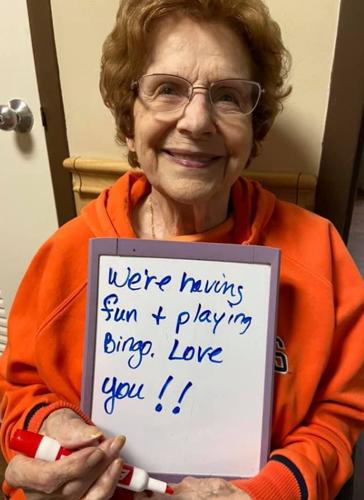 We're having
fun + playing
Bingo. Love
you!!